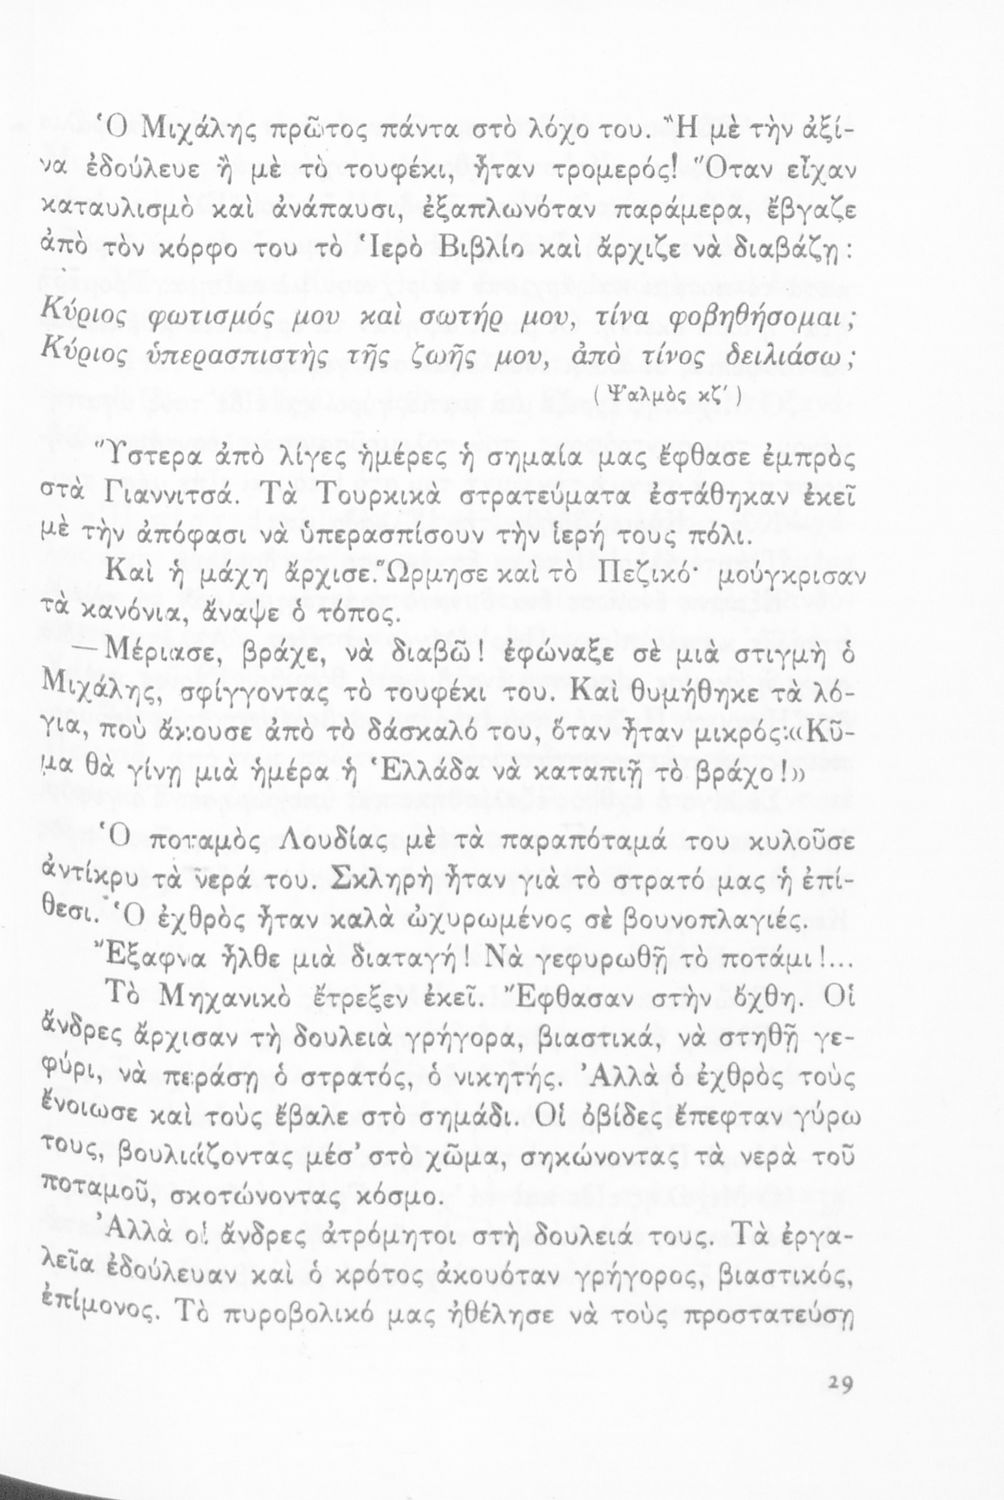 Ὁ Μιχάλης πρῶτος πάντα στὸ λόχο του. Ἢ μὲ τὴν ἀξί-
να ἐδούλευε ἢ μὲ τὸ τουφέκι, ἦταν τρομερός! Ὅταν εἶχαν
καταυλισμὸ καὶ ἀνάπαυσι, ἐξαπλωνόταν παράμερα, ἔβγαζε
ἀπὸ τὸν κόρφο του τὸ Ἱερὸ Βιβλίο καὶ ἄρχιζε νὰ διαβάζῃ :
Κύριος φωτισμός μου καὶ σωτήρ μου, τίνα φοβηθήσομαι;
Κύριος ὑπερασπιστὴς τῆς ζωῆς μου, ἀπὸ τίνος δειλιάσω;
(Ψαλμὸς κζ΄)
Ὕστερα ἀπὸ λίγες ἡμέρες ἡ σημαία μας ἔφθασε ἐμπρὸς
στὰ Γιαννιτσά. Τὰ Τουρκικὰ στρατεύματα ἐστάθηκαν ἐκεῖ
μὲ τὴν ἀπόφασι νὰ ὑπερασπίσουν τὴν ἱερή τους πόλι.
Καὶ ἡ μάχη ἄρχισε. Ὥρμησε καὶ τὸ Πεζικό· μούγκρισαν
τὰ κανόνια, ἄναψε ὁ τόπος.
— Μέριασε, βράχε, νὰ διαβῶ! ἐφώναξε σὲ μιὰ στιγμὴ ὁ
Μιχάλης, σφίγγοντας τὸ τουφέκι του. Καὶ θυμήθηκε τὰ λό-
για, ποὺ ἄκουσε ἀπὸ τὸ δάσκαλό του, ὅταν ἦταν μικρός:«Κῦ-
μα θὰ γίνῃ μιὰ ἡμέρα ἡ Ἑλλάδα νὰ καταπιῇ τὸ βράχο!»
Ὁ ποταμὸς Λουδίας μὲ τὰ παραπόταμά του κυλοῦσε
ἀντίκρυ τὰ νερά του. Σκληρὴ ἦταν γιὰ τὸ στρατό μας ἡ ἐπί-
θεσι. Ὁ ἐχθρὸς ἦταν καλὰ ὠχυρωμένος σὲ βουνοπλαγιές.
Ἔξαφνα ἦλθε μιὰ διαταγή! Νὰ γεφυρωθῇ τὸ ποτάμι!...
Τὸ Μηχανικὸ ἔτρεξεν ἐκεῖ. Ἔφθασαν στὴν ὄχθη. Οἱ
ἄνδρες ἄρχισαν τὴ δουλειὰ γρήγορα, βιαστικά, νὰ στηθῇ γε-
φύρι, νὰ περάσῃ ὁ στρατός, ὁ νικητής. Ἀλλὰ ὁ ἐχθρὸς τοὺς
ἔνοιωσε καὶ τοὺς ἔβαλε στὸ σημάδι. Οἱ ὀβίδες ἔπεφταν γύρω
τους, βουλιάζοντας μέσ' στὸ χῶμα, σηκώνοντας τὰ νερὰ τοῦ
ποταμοῦ, σκοτώνοντας κόσμο.
Ἀλλὰ οἱ ἄνδρες ἀτρόμητοι στὴ δουλειά τους. Τὰ ἐργα-
λεῖα ἐδούλευαν καὶ ὁ κρότος ἀκουόταν γρήγορος, βιαστικός,
ἐπίμονος. Τὸ πυροβολικό μας ἠθέλησε νὰ τοὺς προστατεύσῃ
29